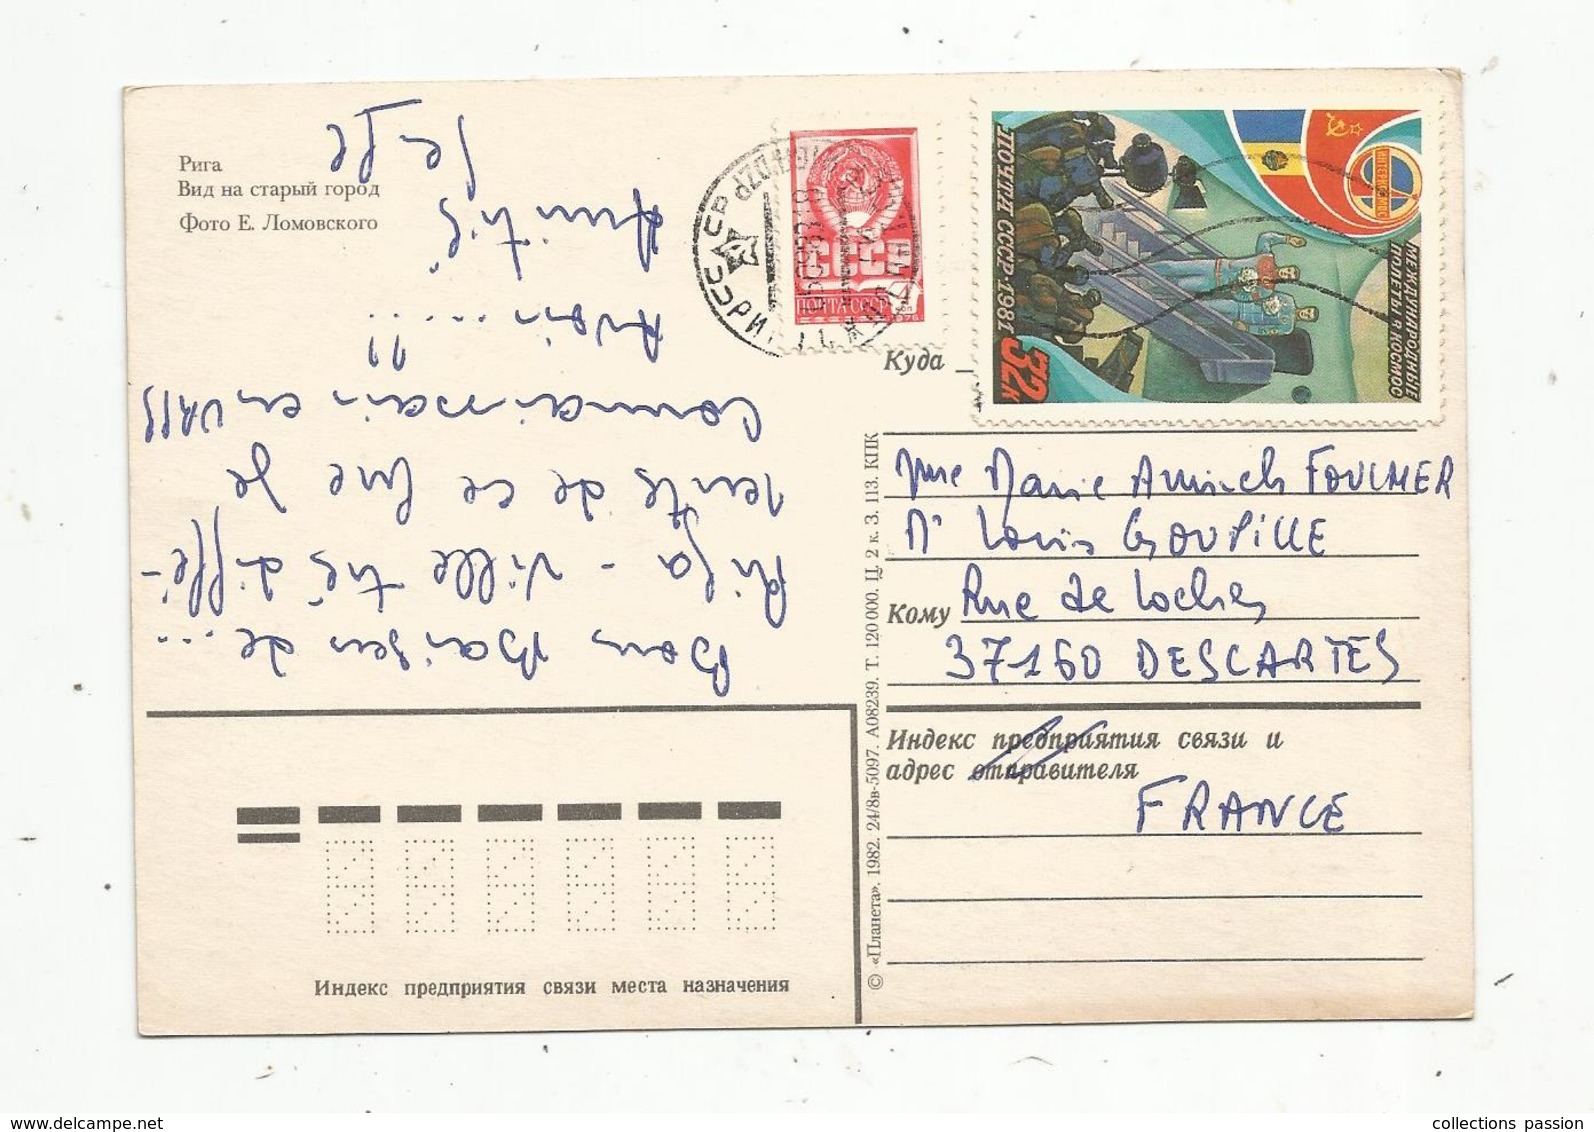 Рига
Вид на старый город
Фото Е. Ломовского
Bons Baisers de ...
Riga - Ville très diffé-
rente de ce que je
connaissais en URSS
!!
Avoir ....
Amitiés
ПОЧТА СССР
1976
ПОЧТА СССР·1981
32к
МЕЖДУНАРОДНЫЕ
ПОЛЕТЫ В КОСМОС
ИНТЕРКОСМОС
Куда
Mme Marie Annick FOULMER
Louis GOUPILLE
Кому Rue de Loches
37160 DESCARTES
Индекс предприятия связи и
адрес отправителя
FRANCE
© «Планета». 1982. 24/8в-5097. А08239. Т. 120 000. Ц. 2 к. З. 113. КПК
Индекс предприятия связи места назначения
collections passion